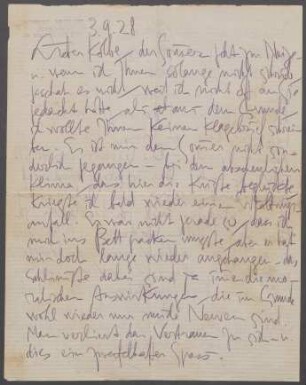 3.9.28
Lieber Kolbe, der Sommer geht zur Neige
u. wenn ich Ihnen solange nicht schrieb
geschah es nicht weil ich nicht oft an Sie
gedacht hätte als aus dem Grunde
ich wollte Ihnen keinen Klagebrief schrei-
ben. Es ist mir den Sommer nicht son-
derlich gegangen – bei dem abscheulichen
Klima, das hier die Küste
kriegte ich bald wieder einen
anfall. Es war nicht gerade so, dass ich
mich ins Bett packen musste, aber es hat
mir doch lange wieder angehangen. Das
schlimmste dabei sind ja immer die mo-
ralischen Auswirkungen, die im Grunde
wohl wieder nur müde Nerven sind.
Man verliert das Vertrauen zu sich u.
dies ein zweifelhafter Spass.